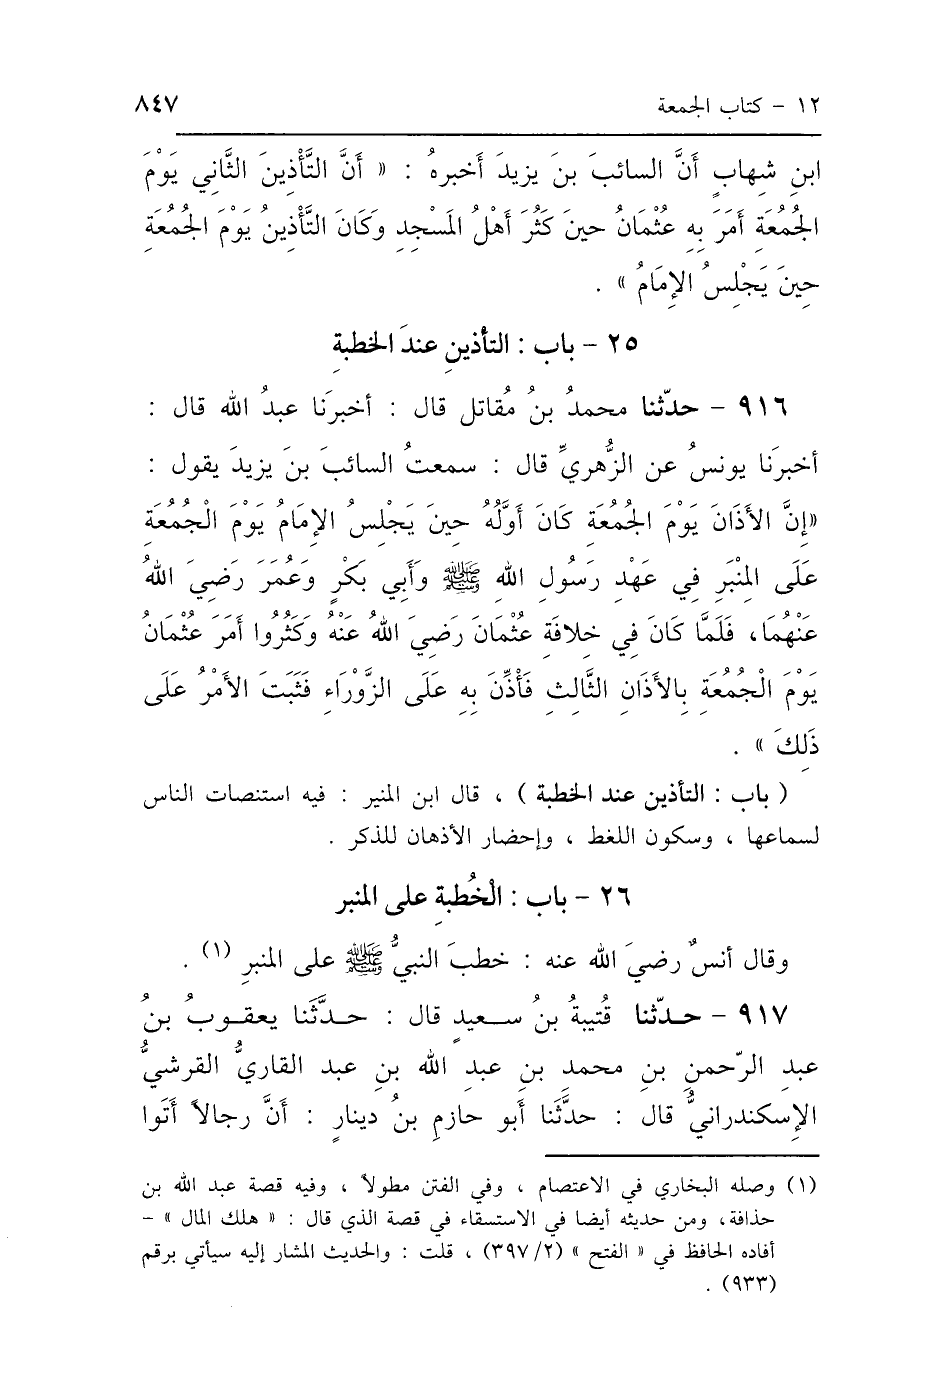 ١٢ – كتاب الجمعة ٨٤٧
ابنِ شهابٍ أَنَّ السائبَ بنَ يزيدَ أَخبرهُ : « أَنَّ التَّأْذِينَ الثَّاني يَوْمَ
الجُمُعَةِ أَمَرَ بِهِ عثْمَانُ حينَ كَثُرَ أَهْلُ المَسْجِدِ وَكَانَ التَّأْذِينُ يَوْمَ الجُمُعَةِ
حِينَ يَجْلِسُ الإِمَامُ » .
٢٥ – باب : التأذينِ عندَ الخطبةِ
٩١٦ – حدّثنا محمدُ بنُ مُقاتل قال : أخبرَنا عبدُ الله قال :
أخبرَنا يونسُ عن الزُّهريِّ قال : سمعتُ السائبَ بنَ يزيدَ يقول :
«إِنَّ الأَذَانَ يَوْمَ الجُمُعَةِ كَانَ أَوَّلُهُ حِينَ يَجْلِسُ الإِمَامُ يَوْمَ الْجُمُعَةِ
عَلَى المِنْبَرِ فِي عَهْدِ رَسُولِ اللهِ ﷺ وَأَبِي بَكْرٍ وَعُمَرَ رَضِيَ اللهُ
عَنْهُمَا، فَلَمَّا كَانَ فِي خِلافَةِ عثْمَانَ رَضِيَ اللهُ عَنْهُ وَكَثُرُوا أَمَرَ عثْمَانُ
يَوْمَ الْجُمُعَةِ بِالأَذَانِ الثَّالِثِ فَأُذِّنَ بِهِ عَلَى الزَّوْرَاءِ فَثَبَتَ الأَمْرُ عَلَى
ذَلِكَ » .
( باب : التأذين عند الخطبة ) ، قال ابن المنير : فيه استنصات الناس
لسماعها ، وسكون اللغط ، وإحضار الأذهان للذكر .
٢٦ – باب : الْخُطبةِ على المنبر
وقال أنسٌ رضيَ الله عنه : خطبَ النبيُّ ﷺ على المنبرِ (١) .
٩١٧ – حـدّثنا قُتيبةُ بنُ سـعيدٍ قال : حـدَّثَنا يعقـوبُ بنُ
عبدِ الرّحمنِ بنِ محمد بنِ عبدِ الله بنِ عبد القاريُّ القرشيُّ
الإِسكندرانيُّ قال : حدَّثَنا أَبو حازمِ بنُ دينارٍ : أَنَّ رجالاً أَتَوا
(١) وصله البخاري في الاعتصام ، وفي الفتن مطولاً ، وفيه قصة عبد الله بن
حذافة، ومن حديثه أيضا في الاستسقاء في قصة الذي قال : « هلك المال » –
أفاده الحافظ في « الفتح » (٣٩٧/٢) ، قلت : والحديث المشار إليه سيأتي برقم
(٩٣٣) .